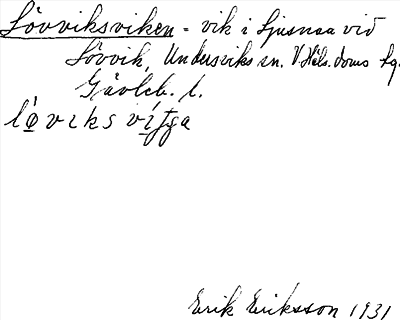 Lövviksviken - vik i Ljusnan vid
Lövvik, Undersviks sn. V. Häls. doms tg.
Gävleb. l.
löviksvitga
Erik Eriksson 1931